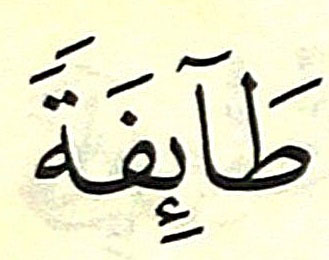 طَآئِفَةً